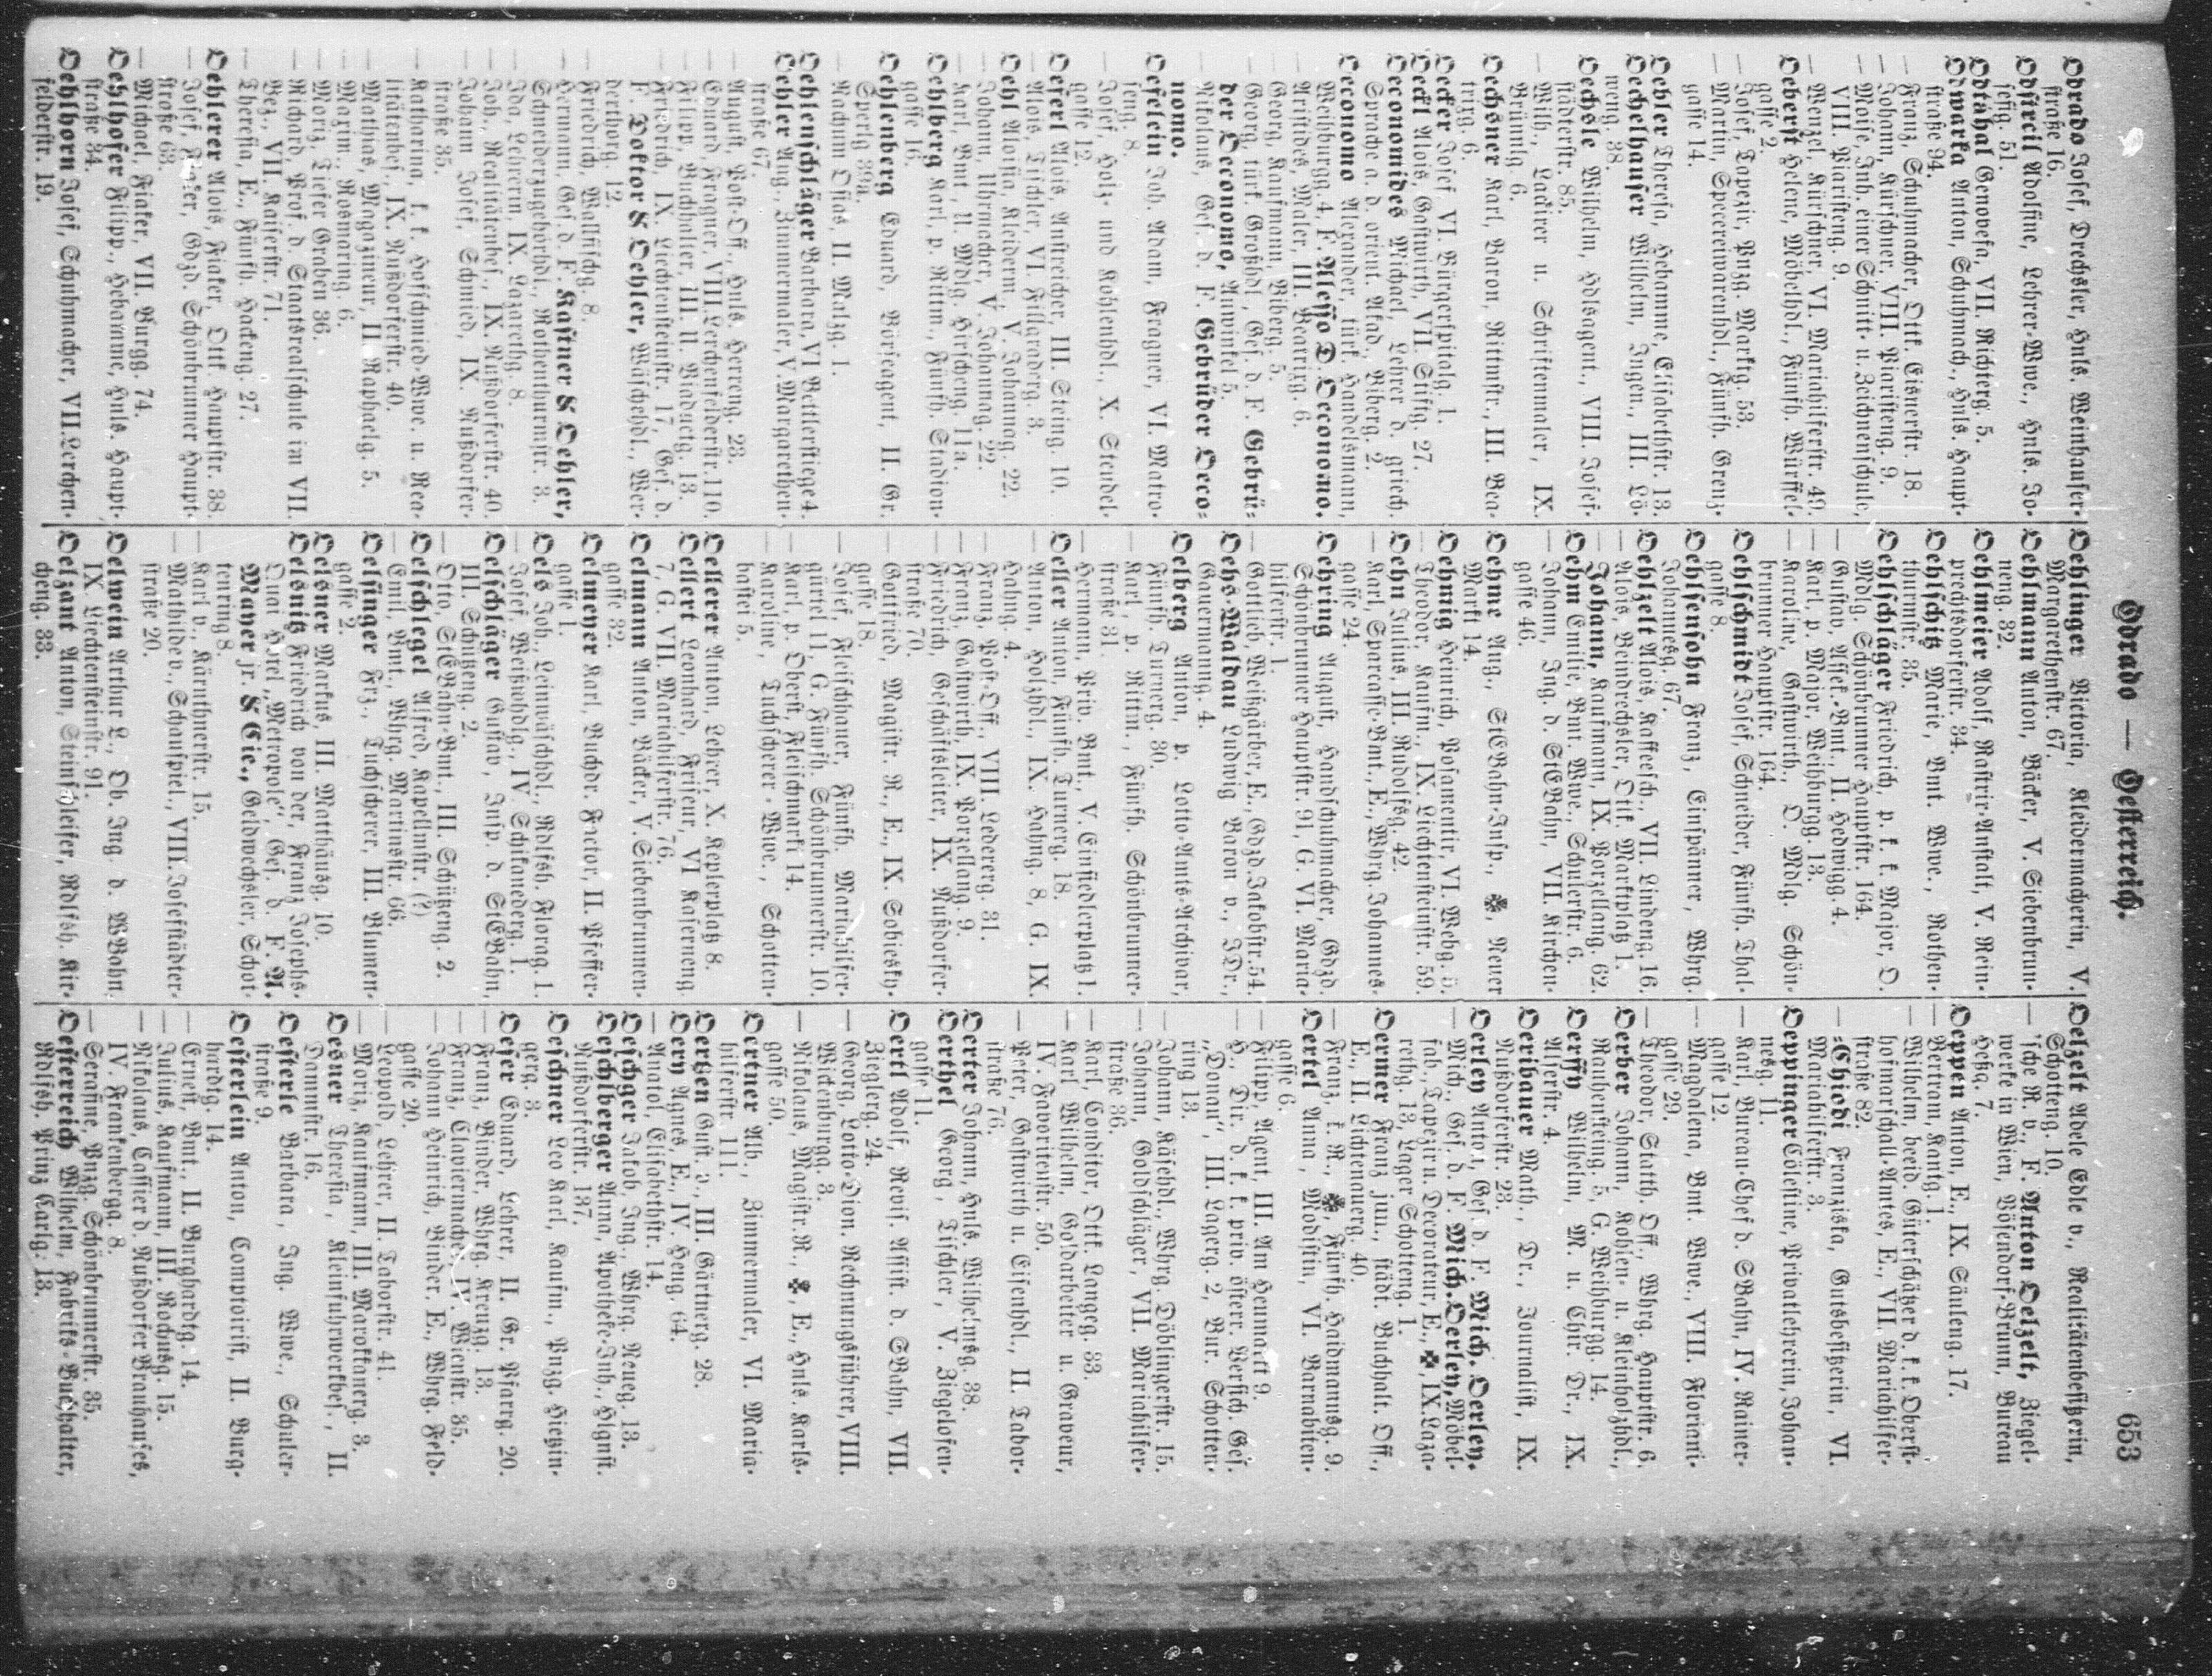 Odrado — Oesterreich.
653
Odrado Josef, Drechsler, Hnls. Weinhauser-
straße 16.
Odstrcil Adolfine, Lehrer-Wwe., Hnls. Jo-
sefig. 51.
Odtahal Genovefa, VII. Richterg. 5.
Odwarka Anton, Schuhmach., Hnls. Haupt-
straße 94.
— Franz, Schuhmacher, Ottk. Eisnerstr. 18.
— Johann, Kürschner, VIII. Piaristeng. 9.
— Moise, Inh. einer Schnitt- u. Zeichnenschule,
VIII. Piaristeng. 9.
— Wenzel, Kürschner, VI. Mariahilferstr. 49.
Oeberst Helene, Möbelhdl., Fünfh. Würffel-
gasse 2.
— Josef, Tapezir, Pnzg. Marktg. 53.
— Martin, Specereiwarenhdl., Fünfh. Grenz-
gasse 14.
Oebler Theresa, Hebamme, Elisabethstr. 13.
Oechelhauser Wilhelm, Ingen., III. Lö-
weng. 38.
Oechsle Wilhelm, Hdlsagent., VIII. Josef-
städterstr. 85.
— Wilh., Lackirer u. Schriftenmaler, IX.
Brünnlg. 6.
Oechsner Karl, Baron, Rittmstr., III. Bea-
trxg. 6.
Oecker Josef, VI. Bürgerspitalg. 1.
Oeckl Alois, Gastwirth, VII. Stiftg. 27.
Oeconomides Michael, Lehrer d. griech.
Sprache a. d. orient. Akad., Biberg. 2.
Oeconomo Alexander, türk. Handelsmann,
Weihburgg. 4, F. Alessio D. Oeconomo.
— Aristides, Maler, III. Beatrixg. 6.
— Georg, Kaufmann, Biberg. 5.
— Georg, türk. Großhdl., Ges. d. F. Gebrü-
der Oeconomo, Auwinkel 5.
— Nikolaus, Ges. d. F. Gebrüder Oeco-
nomo.
Oefelein Joh. Adam, Fragner, VI. Matro-
seng. 8.
— Josef, Holz- und Kohlenhdl., X. Steudel-
gasse 12.
Oeferl Alois, Anstreicher, III. Steing. 10.
— Alois, Tischler, VI. Fillgraderg. 3.
Oehl Aloisia, Kleiderm., V. Johannag. 22.
— Johann, Uhrmacher, V. Johannag. 22.
— Karl, Bmt., U. Mdlg. Hirscheng. 11a.
Oehlberg Karl, p. Rittm., Fünfh. Stadion-
gasse 16.
Oehlenberg Eduard, Börseagent, II. Gr.
Sperlg. 39a.
— Nachum Osias, II. Malzg. 1.
Oehlenschläger Barbara, VI. Bettlerstiege 4.
Oehler Aug., Zimmermaler, V. Margarethen-
straße 67.
— August, Post-Off., Hnls. Herreng. 23.
— Eduard, Fragner, VIII. Lerchenfelderstr. 110.
— Filipp, Buchhalter, III. U. Viaductg. 13.
— Friedrich, IX. Liechtensteinstr. 17, Ges. d.
F. Doktor & Oehler, Wäschehdl., Wer-
derthorg. 12.
— Friedrich, Wallfischg. 8.
— Hermann, Ges. d. F. Kastner & Oehler,
Schneiderzugehörhdl., Rothenthurmstr. 3.
— Ida, Lehrerin, IX. Lazarethg. 8.
— Joh., Realitätenbes., IX. Nußdorferstr. 40.
— Johann Josef, Schmied, IX. Nußdorfer-
straße 35.
— Katharina, k. k. Hofschmied-Wwe. u. Rea-
litätenbes., IX. Nußdorferstr. 40.
— Mathias, Magazineur, II. Raphaelg. 5.
— Maxim., Rosmaring. 6.
— Moriz, Tiefer Graben 36.
— Richard, Prof. d. Staatsrealschule im VII.
Bez., VII. Kaiserstr. 71.
— Theresia, E., Fünfh. Hackeng. 27.
Oehlerer Alois, Fiaker, Ottk. Hauptstr. 38.
— Josef, Fiaker, Gdzd. Schönbrunner Haupt-
straße 63.
— Michael, Fiaker, VII. Burgg. 74.
Oehlhofer Filipp., Hebamme, Hnls. Haupt-
straße 34.
Oehlhorn Josef, Schuhmacher, VII. Lerchen-
felderstr. 19.
Oehlinger Victoria, Kleidermacherin, V.
Margarethenstr. 67.
Oehlmann Anton, Bäcker, V. Siebenbrun-
neng. 32.
Oehlmeier Adolf, Rastrir-Anstalt, V. Rein-
prechtsdorferstr. 34.
Oehlschitz Marie, Bmt. Wwe., Rothen-
thurmstr. 35.
Oehlschläger Friedrich, p. k. k. Major, O.
Mdlg. Schönbrunner Hauptstr. 164.
— Gustav, Assek.-Bmt., II. Hedwigg. 4.
— Karl, p. Major, Weihburgg. 18.
— Karoline, Gastwirth., O. Mdlg. Schön-
brunner Hauptstr. 164.
Oehlschmidt Josef, Schneider, Fünfh. Thal-
gasse 8.
Oehlsensohn Franz, Einspänner, Whrg.
Johannesg. 67.
Oehlzelt Alois, Kaffeesch., VII. Lindeng. 16.
— Alois, Beindrechsler, Ottk. Marktplatz 1.
— Johann, Kaufmann, IX. Porzellang. 62.
Oehm Emilie, Bmt. Wwe., Schulerstr. 6.
— Johann, Ing. d. StEBahn, VII. Kirchen-
gasse 46.
Oehme Aug., StEBahn-Insp., ✠, Neuer
Markt 14.
Oehmig Heinrich, Posamentir, VI. Webg. 5.
— Theodor, Kaufm., IX. Liechtensteinstr. 59.
Oehn Julius, III. Rudolfsg. 42.
— Karl, Sparcasse-Bmt., E., Whrg. Johannes-
gasse 24.
Oehring August, Handschuhmacher, Gdzd.
Schönbrunner Hauptstr. 91, G. VI. Maria-
hilferstr. 1.
— Gottlieb, Weißgärber, E., Gdzd. Jakobstr. 54.
Oehs-Waldau Ludwig Baron v., JDr.,
Gauermanng. 4.
Oelberg Anton, p. Lotto-Amts-Archivar,
Fünfh. Turnerg. 30.
— Karl, p. Rittm., Fünfh. Schönbrunner-
straße 31.
— Hermann, Priv. Bmt., V. Einsiedlerplatz 1.
Oeller Anton, Fünfh. Turnerg. 18.
— Anton, Holzhdl., IX. Hahng. 8, G. IX.
Hahng. 4.
— Franz, Post-Off., VIII. Ledererg. 31.
— Franz, Gastwirth, IX. Porzellang. 9.
— Friedrich, Geschäftsleiter, IX. Nußdorfer-
straße 70.
— Gottfried, Magistr. R., E., IX. Sobiesky-
gasse 18.
— Josef, Fleischhauer, Fünfh. Mariahilfer-
gürtel 11, G. Fünfh. Schönbrunnerstr. 10.
— Karl, p. Oberst, Fleischmarkt 14.
— Karoline, Tuchscherer-Wwe., Schotten-
bastei 5.
Oellerer Anton, Lehrer, X. Keplerplatz 8.
Oellert Leonhard, Friseur, VI. Kaserneng.
7, G. VII. Mariahilferstr. 76.
Oelmann Anton, Bäcker, V. Siebenbrunnen-
gasse 32.
Oelmeyer Karl, Buchdr. Factor, II. Pfeffer-
gasse 1.
Oels Joh., Leinwäschhdl., Rdlfsh. Florag. 1.
— Josef, Weißwhdlg., IV. Schikanederg. 1.
Oelschläger Gustav, Insp. d. StEBahn,
III. Schützeng. 2.
— Otto, StEBahn-Bmt., III. Schützeng. 2.
Oelschlegel Alfred, Kapellmstr. (?)
— Emil, Bmt., Whrg. Martinsstr. 66.
Oelsinger Frz., Tuchscherer, III. Blumen-
gasse 2.
Oelsner Markus, III. Matthäusg. 10.
Oelsnitz Friedrich von der, Franz Josephs-
Quai Hotel „Metropole“, Ges. d. F. A.
Mayer jr. & Cie., Geldwechsler, Schot-
tenring 8.
— Karl v., Kärnthnerstr. 15.
— Mathilde v., Schauspiel., VIII. Josefstädter-
straße 20.
Oelwein Arthur L., Ob. Ing. d. WBahn.
IX. Liechtensteinstr. 91.
Oelzant Anton, Steinschleifer, Rdlfsh. Kir-
cheng. 33.
Oelzelt Adele Edle v., Realitätenbesitzerin,
Schotteng. 10.
— 'sche R. v., F. Anton Oelzelt, Ziegel-
werke in Wien, Vösendorf-Brunn, Bureau
Heßg. 7.
Oeppen Anton, E., IX. Säuleng. 17.
— Bertram, Kantg. 1.
— Wilhelm, beeid. Güterschätzer d. k. k. Oberst-
hofmarschall-Amtes, E., VII. Mariahilfer-
straße 82.
-Chiodi Franziska, Gutsbesitzerin, VI.
Mariahilferstr. 3.
Oeppinger Cölestine, Privatlehrerin, Johan-
nesg. 11.
— Karl, Bureau-Chef d. SBahn, IV. Rainer-
gasse 12.
— Magdalena, Bmt. Wwe., VIII. Floriani-
gasse 29.
— Theodor, Statth. Off., Whrg. Hauptstr. 6.
Oerber Johann, Kohlen- u. Kleinholzhdl.,
Rauhensteing. 5, G. Weihburgg. 14.
Oerffy Wilhelm, M. u. Chir. Dr., IX.
Alserstr. 4.
Oeribauer Math., Dr., Journalist, IX.
Nußdorferstr. 23.
Oerley Anton, Ges. d. F. Mich. Oerley.
— Mich., Ges. d. F. Mich. Oerley, Möbel-
fab., Tapezir u. Decorateur, E., ✠, IX. Laza-
rethg. 13, Lager Schotteng. 1.
Oermer Franz jun., städt. Buchhalt. Off.,
E., II. Lichtenauerg. 40.
— Franz, k. R., ✠, Fünfh. Haidmannsg. 9.
Oertel Anna, Modistin, VI. Barnabiten-
gasse 6.
— Filipp, Agent, III. Am Heumarkt 9.
— H., Dir. d. k. k. priv. österr. Versich. Ges.
„Donau“, III. Lagerg. 2, Bur. Schotten-
ring 13.
— Johann, Käsehdl., Whrg. Döblingerstr. 15.
— Johann, Goldschläger, VII. Mariahilfer-
straße 36.
— Karl, Conditor, Ottk. Langeg. 33.
— Karl Wilhelm, Goldarbeiter u. Graveur,
IV. Favoritenstr. 50.
— Peter, Gastwirth u. Eisenhdl., II. Tabor-
straße 76.
Oerter Johann, Hnls. Wilhelmsg. 38.
Oerthel Georg, Tischler, V. Ziegelofen-
gasse 11.
Oertl Adolf, Revis. Assist. d. SBahn, VII.
Zieglerg. 24.
— Georg, Lotto-Dion. Rechnungsführer, VIII.
Wickenburgg. 3.
— Nikolaus, Magistr. R., ✠, E., Hnls. Karls-
gasse 50.
Oertner Alb., Zimmermaler, VI. Maria-
hilferstr. 111.
Oertzen Gust. v., III. Gärtnerg. 28.
Oery Agnes, E., IV. Heug. 64.
— Anatol, Elisabethstr. 14.
Oeschger Jakob, Ing., Whrg. Neueg. 13.
Oeschlberger Anna, Apotheke-Inh., Hlgnst.
Nußdorferstr. 137.
Oeschner Leo Karl, Kaufm., Pnzg. Hietzin-
gerg. 3.
Oeser Eduard, Lehrer, II. Gr. Pfarrg. 20.
— Franz, Binder, Whrg. Kreuzg. 13.
— Franz, Claviermacher, IV. Wienstr. 35.
— Johann Heinrich, Binder, E., Whrg. Feld-
gasse 20.
— Leopold, Lehrer, II. Taborstr. 41.
— Moriz, Kaufmann, III. Marokkanerg. 3.
Oesner Theresia, Kleinfuhrwerkbes., II.
Dammstr. 16.
Oesterle Barbara, Ing. Wwe., Schuler-
straße 9.
Oesterlein Anton, Comptoirist, II. Burg-
hardtg. 14.
— Ernest, Bmt., II. Burghardtg. 14.
— Julius, Kaufmann, III. Rochusg. 15.
— Nikolaus, Cassier d. Nußdorfer Brauhauses,
IV. Frankenbergg. 8.
— Serafine, Pnzg. Schönbrunnerstr. 35.
Oesterreich Wilhelm, Fabriks-Buchhalter,
Rdlfsh. Prinz Carlg. 13.